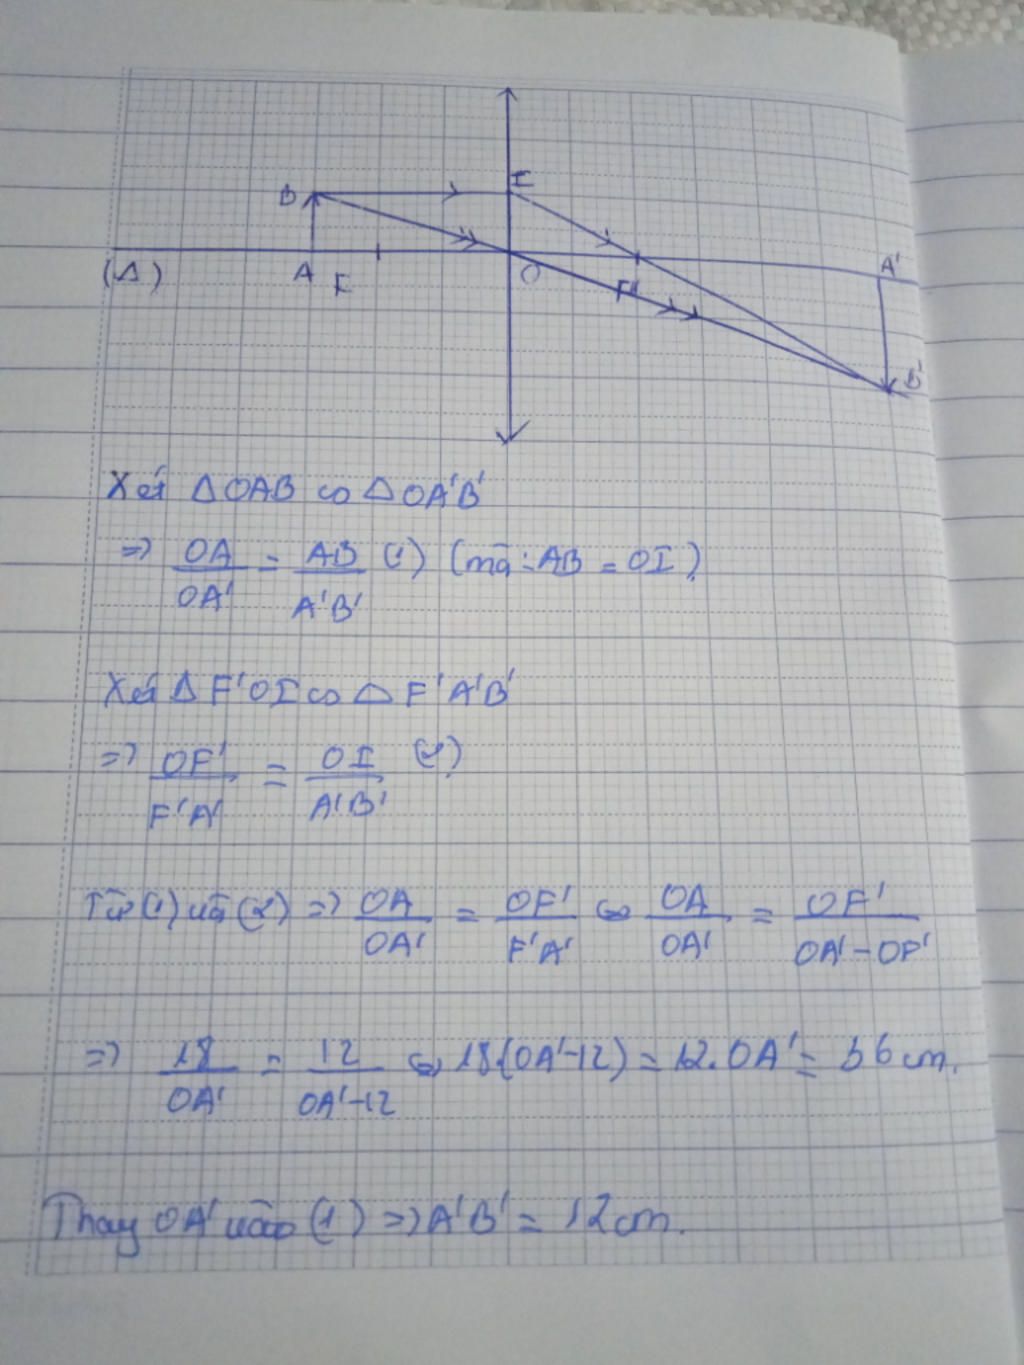 B I
(Δ) A F O F' A'
B'
Xét ΔOAB ∽ ΔOA'B'
=> OA/OA' = AB/A'B' (1) (mà: AB = OI)
Xét ΔF'OI ∽ ΔF'A'B'
=> OF'/F'A' = OI/A'B' (2)
Từ (1) và (2) => OA/OA' = OF'/F'A' ∽ OA/OA' = OF'/OA'-OF'
=> 18/OA' = 12/OA'-12 ∽ 18.(OA'-12) = 12.OA' = 36cm.
Thay OA' vào (1) => A'B' = 12cm.